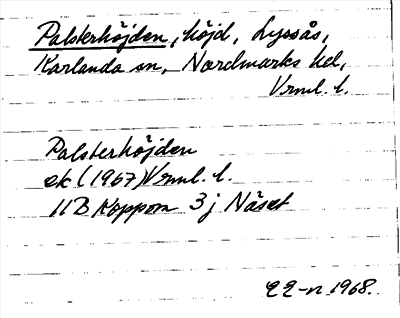 Palsterhöjden, höjd, Lyssås,
Karlanda sn, Nordmarks hd,
Vrml. l.
Palsterhöjden
ek (1967) Vrml. l.
11B Koppom 3 j Näset
EE-n 1968.